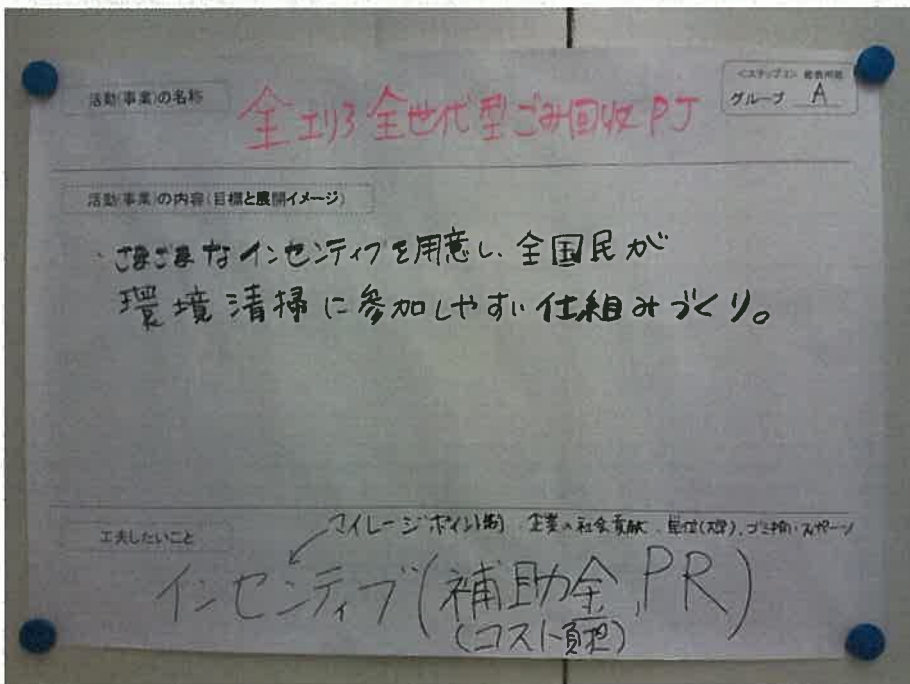 <ステップ3> 発表用紙
グループ A
活動(事業)の名称
全エリア全世代型ごみ回収PJ
活動(事業)の内容(目標と展開イメージ)
・さまざまなインセンティブを用意し、全国民が
環境清掃に参加しやすい仕組みづくり。
工夫したいこと
マイレージポイント制 企業の社会貢献、単位(大学)、ゴミ拾いスポーツ
インセンティブ(補助金,PR)
(コスト負担)